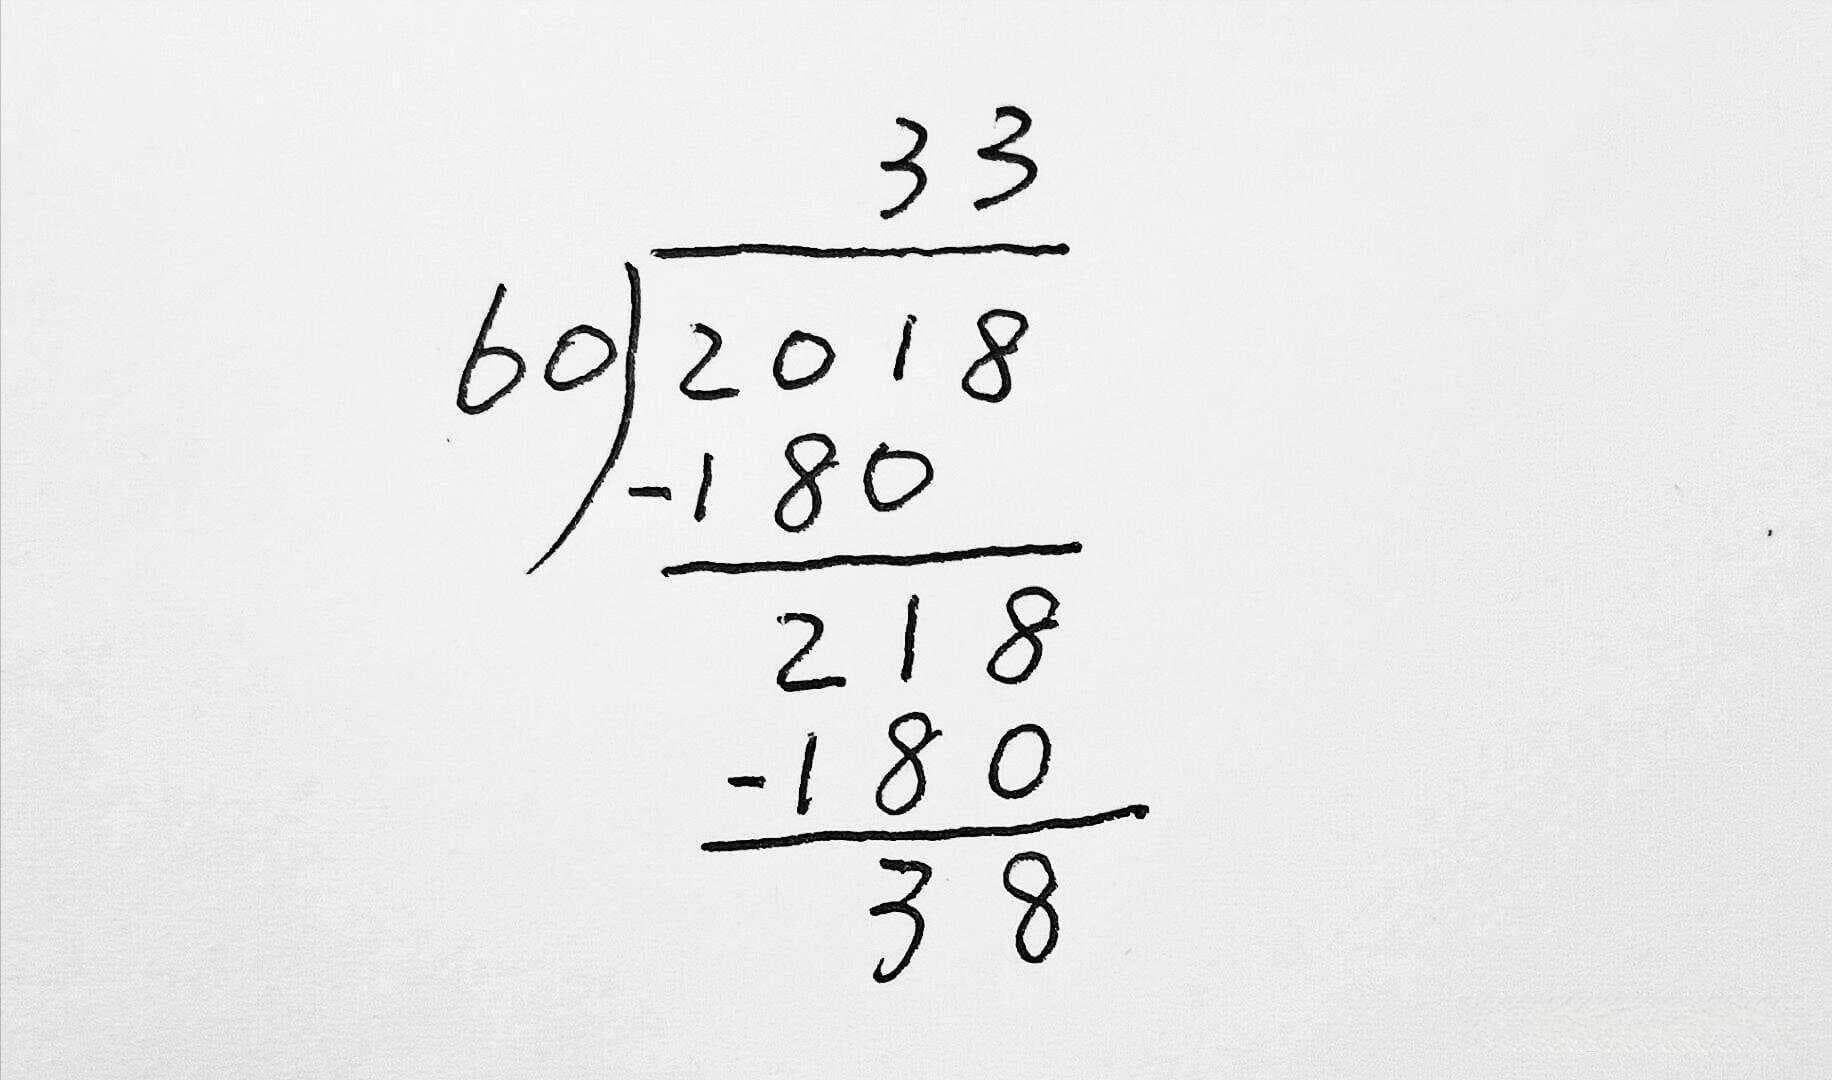 33
60)2018
-180
218
-180
38